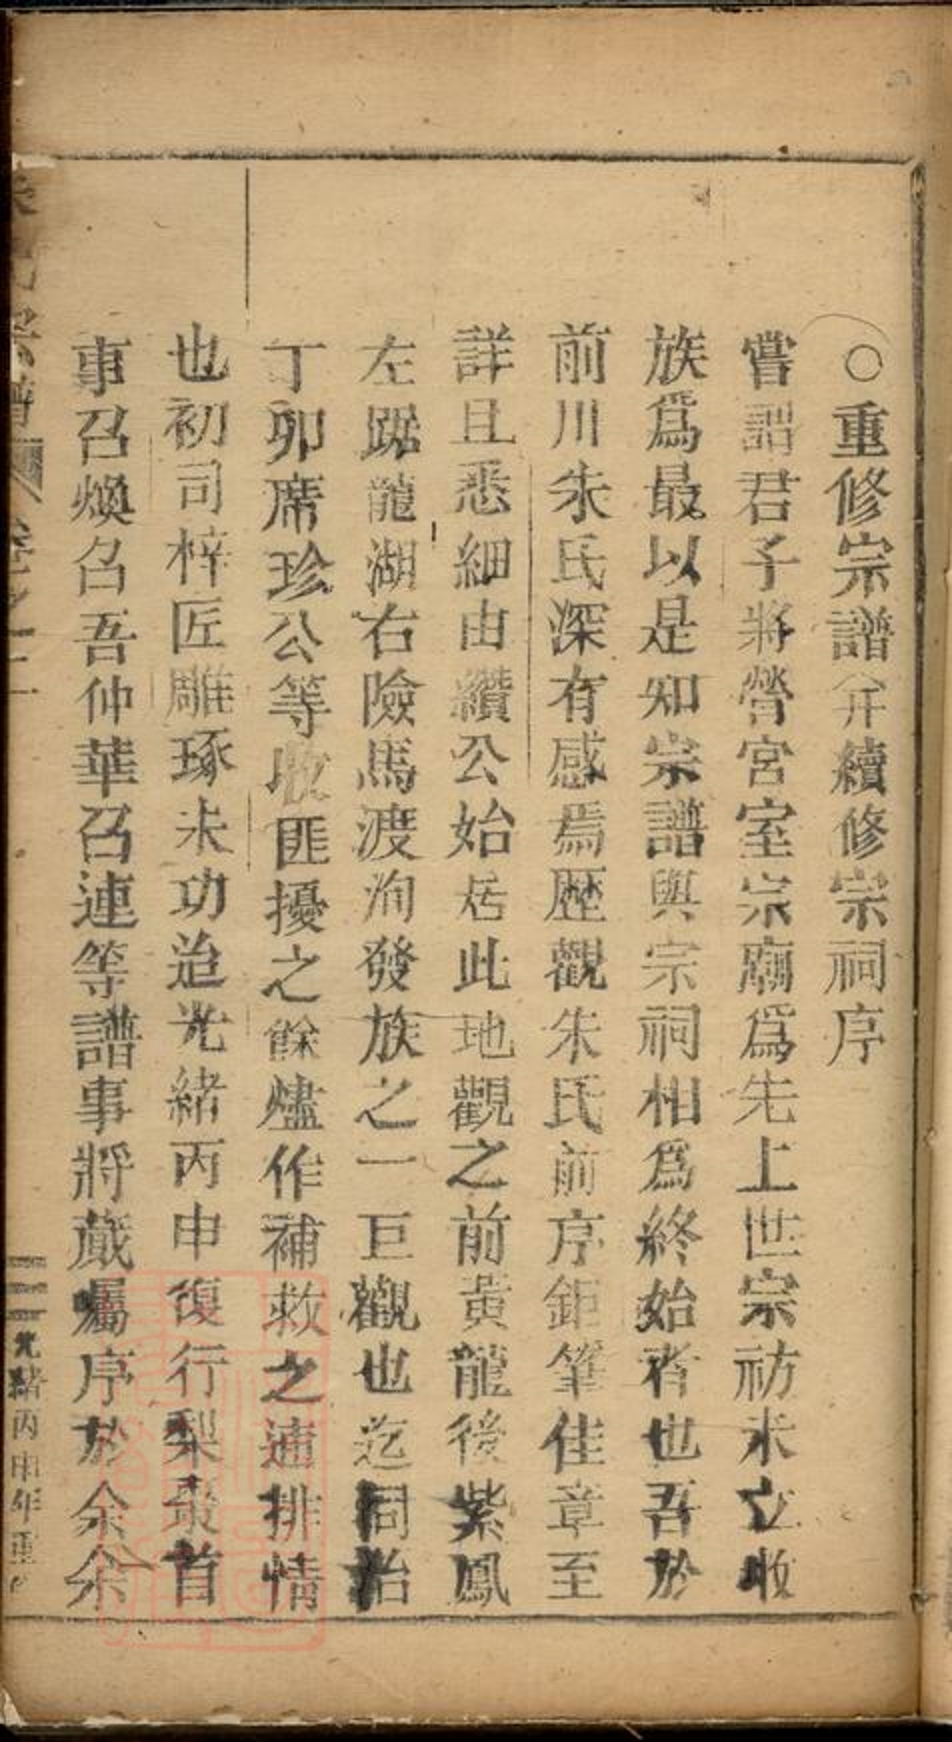 ○重修宗譜并續修宗祠序
嘗謂君子將營宮室宗廟爲先上世宗祊未立收
族爲最以是知宗譜與宗祠相爲終始者也吾於
前川朱氏深有感焉歷觀朱氏前序鉅筆佳章至
詳且悉細由纘公始居此地觀之前黃龍後紫鳳
左踞龍湖右險馬渡洵發族之一巨觀也迄同治
丁卯席珍公等收匪擾之餘燼作補救之速排情
也初司梓匠雕琢未功迨光緒丙申復行梨棗首
事召煥召吾仲華召連等譜事將蕆屬序於余余
朱氏宗譜 卷之二 光緒丙申年重